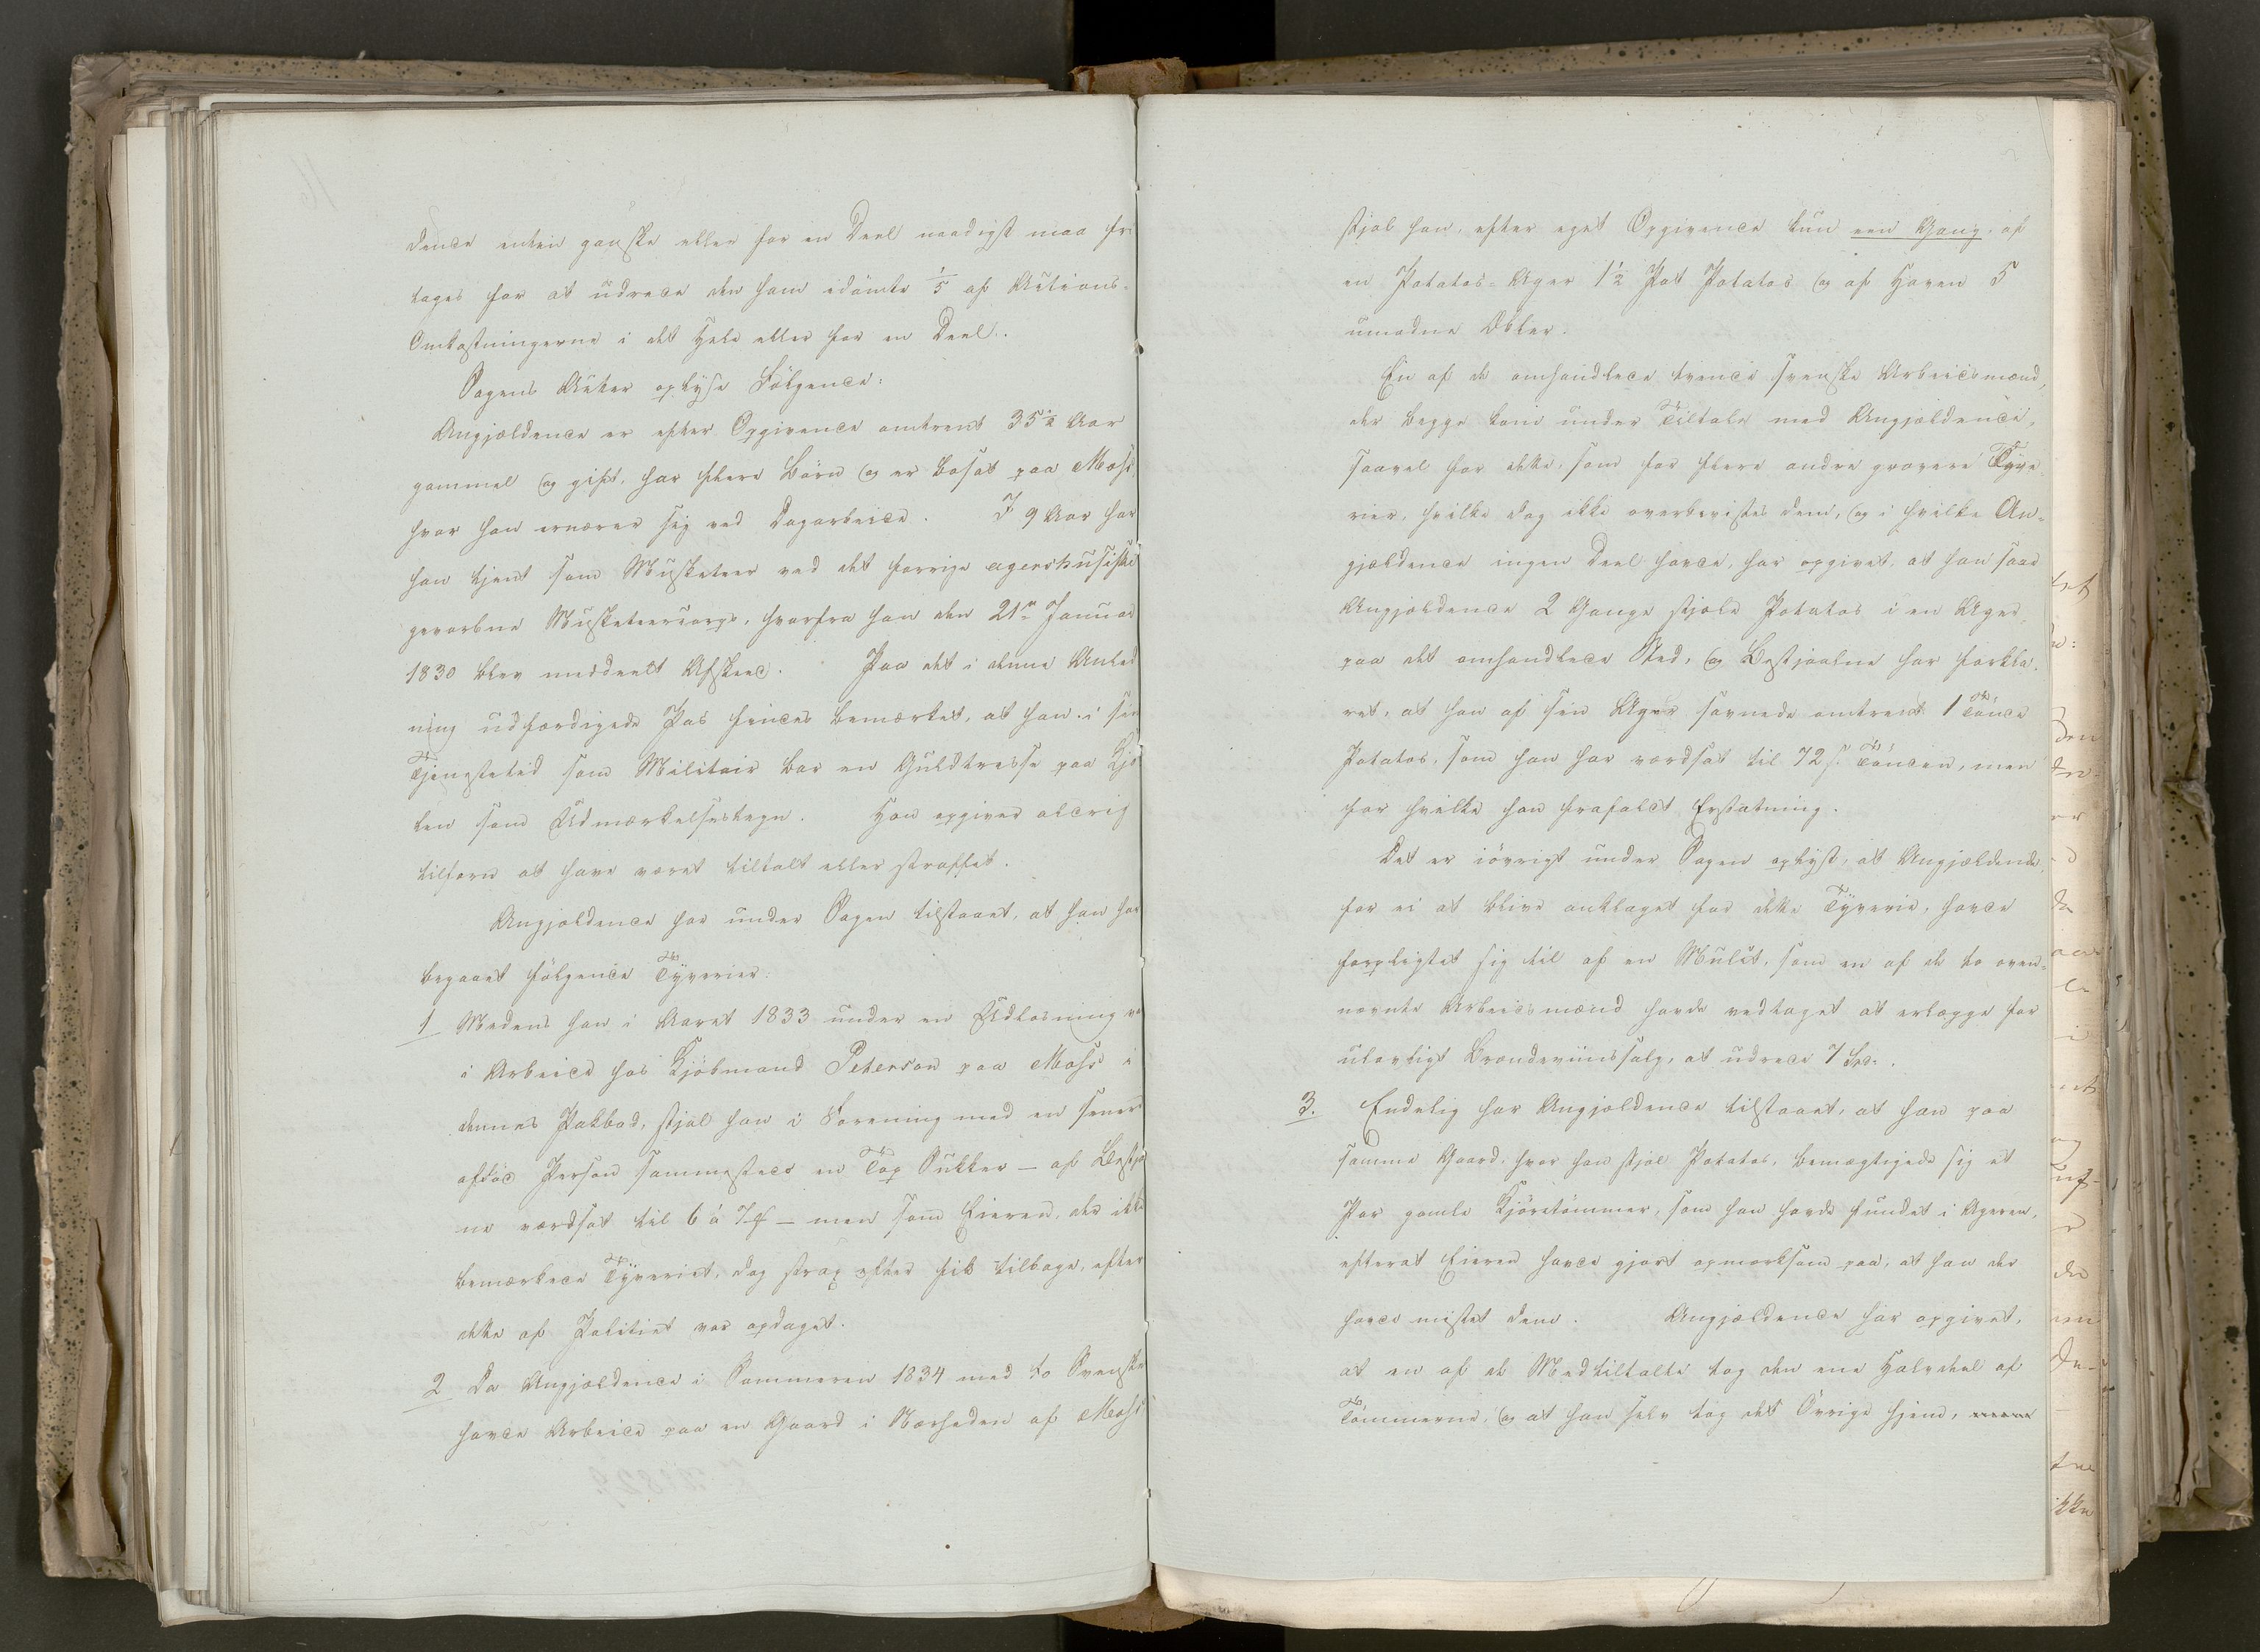 dende enten ganske eller for en Deel naadigst maa fri
tages for at udrede den ham idømte 1/5 af Actions-
Omkostningerne i det Hele eller for en Deel.
Sagens Akter oplyse Følgende:
Angjældende er efter Opgivende omtrent 35½ Aar
gammel og gift, har flere Børn og er bosat paa Moss,
hvor han ernærer sig ved Dagarbeide. I 9 Aar har
han tjent som Musketeer ved det forrige agershusiske
gevorbne Musketeercorps, hvorfra han den 21de Januar
1830 blev meddeelt Afskeed. Paa det i denne Anled
ning udfærdigede Pas findes bemærket, at han i sin
Tjenestetid som Militair bar en Guldtresse paa Kjo
len som Udmærkelsestegn. Han opgiver aldrig
tilforn at have været tiltalt eller straffet.
Angjældende har under Sagen tilstaaet, at han har
begaaet følgende Tyverier:
1 Medens han i Aaret 1833 under en Udlosning va
i Arbeide hos Kjøbmand Peterson paa Moss i
dennes Pakbod, stjal han i Forening med en senere
afdød Person sammesteds en Top Sukker – af Bestjaa
ne værdsat til 6 à 7 ℔ – men som Eieren, der ikke
bemærkede Tyveriet, dog strax efter fik tilbage, efter
dette af Politiet var opdaget.
2 Da Angjældende i Sommeren 1834 med to Svenske
havde Arbeide paa en Gaard i Nærheden af Moss
stjal han, efter eget Opgivende kun een Gang, af
en Potatos-Ager 1½ Pot Potatos og af Haven 5
umodne Æbler.
En af de omhandlede tvende svenske Arbeidsmænd,
der begge kom under Tiltale med Angjældende,
saavel for dette, som for flere andre grovere Tyve
rier, hvilke dog ikke overbevistes dem, og i hvilke An-
gjældende ingen Deel havde, har opgivet, at han saae
Angjældende 2 Gange stjæle Potatos i en Ager,
paa det omhandlede Sted, og Bestjaalne har forkla-
ret, at han af sin Ager savnede omtrent 1 Tønde
Potatos, som han har værdsat til 72 s. Tønden, men
for hvilke han frafaldt Erstatning.
Det er iøvrigt under Sagen oplyst, at Angjældende,
for ei at blive anklaget for dette Tyverie, havde
forpligtet sig til af en Mulct, som en af de to oven-
nævnte Arbeidsmænd havde vedtaget at erlægge for
ulovligt Brændeviinssalg, at udrede 7 Spd.
3. Endelig har Angjældende tilstaaet, at han paa
samme Gaard, hvor han stjal Potatos, bemægtigede sig et
Par gamle Kjøretømmer, som han havde fundet i Ageren,
efterat Eieren havde gjort opmærksom paa, at han der
havde mistet dem. Angjældende har opgivet,
at en af de Medtiltalte tog den ene Halvdeel af
Tømmerne, og at han selv tog det Øvrige hjem,